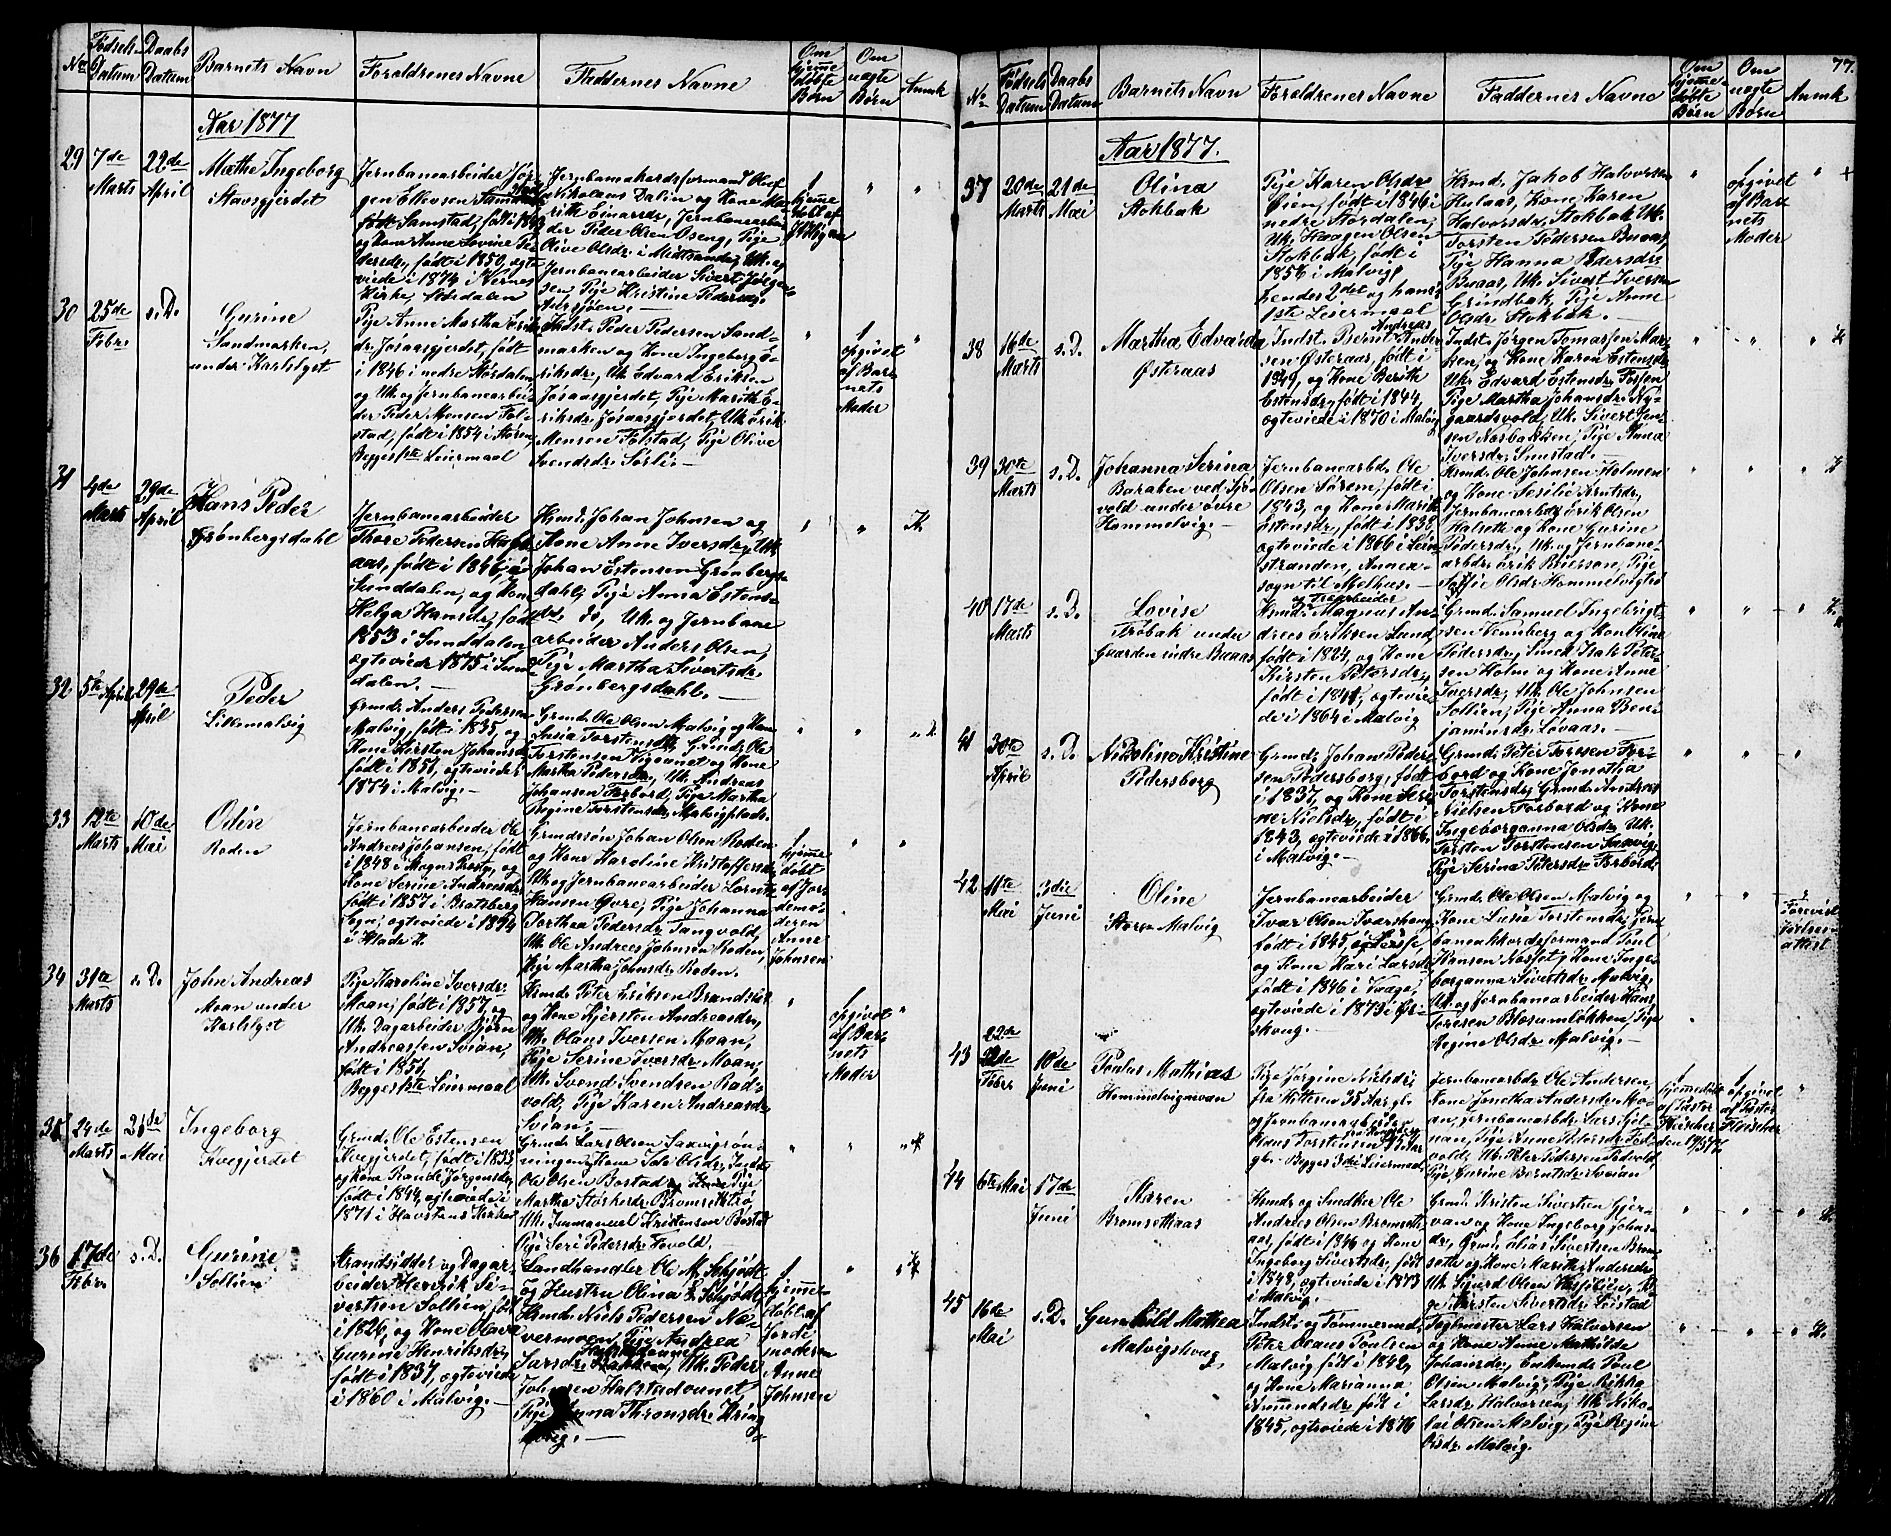 No
Fødsels
Datum
Daabs
Datum
Barnets Navn
Foroldrenes Navne
Faddernes Navne
Om
hjemme
døbte
Børn
Om
uægte
Børn
Anmk
Aar 1877
29
7de
Marts
22de
April
Mæthe Ingeborg
Stavsgjerdet
Jernbanearbeider Jør-
gen Ellevsen
født Samstad, født i
og Kone Anne Lovise Pe-
dersdr, født i 1850, ægte-
viede i 1874 i Værnes
Kirke, Stjørdalen
Jernbaneakordsformand Oluf
Nikolaus Dalin og Kone Ma-
rith Einarsdr, Jernbanearbei-
der Peder Olsen Oseng, Pige
Olive Olsdr i Midtsande, Uk. og
Jernbanearbeider Sivert Jørgen-
sen Pige Kristine Pedersdr
Aursjøen.
30
25de
Febr
s. D.
Gurine
Sandmarken,
under Karlslyst
Pige Anne Martha Erik-
dr. Jøsaasgjerdet, født
i 1846 i nedre Størdalen
og Uk. og Jernbanearbei-
der Peder Monsen Fol-
stad, født i 1854 i Støren
Begges 1ste Leiermaal
Indst. Peder Pedersen Sand-
marken og Kone Ingeborg E-
riksdr, Uk. Edvard Eriksen
Jøsaasgjerdet, Pige Marith E-
riksdr. Jøsaasgjerdet, Uk. Erik
Monsen Folstad, Pige Olive
Svendsdr. Sørli.
opgivet
af Bar-
nets
Moder
31
4de
Marts
29de
April
Hans Peder
Grønbergsdahl
Jernbanearbeider
Thore Pedersen
aas, født i 1846 i
Sunddalen, og Kone
Helga Hansdr, født
1853 i Sunddalen
ægteviede 1875 i Sund
dalen.
Hjmd. Johan Johnsen og
Kone Anne Iversdr, Uk.
Johan Estensen Grønbergs-
dahl, Pige Anna Estens-
datr. do, Uk. og Jernbane
arbeider Anders Olsen,
Pige Martha Sivertsdr.
Grønbergsdahl.
32
5te April
29de
April
Peder
Lillemalvig
Grmd. Anders Pedersen
Malvig, født i 1835, og
Kone Kirsten Johansdr
født i 1851, ægteviede
1874 i Malvig.
Grmd. Ole Olsen Malvig og Kone
Lusia Torstensdtr, Grmd. Ole
Torstensen Vigevnet og Kone
Martha Pedersdr, Uk. Andreas
Johansen Forbord, Pige Martha
Regine Torstensdr, Malvigplads.
33
12te
Marts
10de
Mai
Odin
Roden
Jernbanearbeider Ole
Andreas Johansen, født
i 1848 i Mogns Præstg, og
Kone Serine Andreasdr
født i 1857 i Bratsberg
Sogn, ægteviede i 1874
i Klæbo K.
Grmdssøn Johan Olsen Roden
og Kone Karoline Kristoffersdr
Uk. og Jernbanearbeider Lornts
Hansen Gore, Pige Johanna
Dorthea Pedersdr Tangvold,
Uk. Ole Andreas Johnsen Roden,
Pige Martha Johnsdr. Roden.
hjemme
døbt
af Jor-
demo-
deren
Anne
Johnsen
34
31te
Marts
s. D.
John Andreas
Moan under
Karlslyst
Pige Karoline Iversdr
Moan, født i 1857, og
Uk. Dagarbeider Bjørn
Andreassen Svian,
født i 1851,
Begges 1ste Leiermaal
Hmd. Peter Eriksen Brandslet
og Kone Kjersten Andreasdr,
Uk. Olaus Iversen Moan,
Pige Serine Iversdr. Moan,
Uk. Svend Svendsen Rad-
vold, Pige Karen Andreasdr
Svian.
opgivet
af Bar-
nets
Moder
35
24de
Marts
21de
Mai
Ingeborg
Kvegjerdet
Grmd. Ole Estensen
Kvegjerdet, født i 1833
og Kone Randi Jørgensdr
født i 1844, ægteviede i
1871 i Havstens Kirke
Grmd. Lars Olsen Saxvigrøn-
ningen, Kone Ida Olsdr, Inds
Ole Olsen Bostad, Pige
Martha Storkersdr. Bromsethrø
Uk. Immanuel Kristensen Bostad
Pige Seri Pedersdr. Fovold.
36
17de
Febr
s. D.
Gurine
Sollien
Strandsidder og Dagar-
beider Henrik Si-
vertsen Sollien, født
i 1826, og Kone Olava
Gurine Henriksdr,
født i 1837, ægteviede
i 1860 i Malvig.
Landhandler Ole M. Schjødt
og Hustru Olina E. Schjødt
Hmd. Niels Pedersen Næ-
vermoen, Pige Andrea
Larsdr, Uk. Peder
Johnsen Halstadvunet,
Pige Anna Thronsdr. Kring
vig.
hjemme-
døbt af
Jorde-
moderen
Anne
Johnsen
77.
No
Fødsels
Datum
Daabs
Datum
Barnets Navn
Foroldrenes Navne
Faddernes Navne
Om
hjemme
døbte
Børn
Om
uægte
Børn
Anmk
Aar 1877.
37
20de
Marts
21de
Mai
Olina
Stokbak
Pige Karen Olsdr
Øien, født i 1846 i
nedre Størdalen,
Uk. Haagen Olsen
Stokbak, født i
1856 i Malvig
hendes 2det og hans
1ste Leiermaal
Hmd. Jakob Halvorsen
Hulaas, Kone Karen
Halvorsdr. Stokbak, Uk.
Torsten Pedersen Busaas
Pige Hanna Pedersdr
Busaas, Uk. Sivert Iversen
Grindbak, Pige Anne
Olsdr. Stokbak.
opgivet
af Bar-
nets
Moder
38
16de
Marts
s. D.
Martha Edvarda
Østeraas
Indst. Bernt Ander-
sen Østeraas, født i
1849, og Kone Berith
Estensdr, født i 1844,
ægteviede i 1870 i Malvig
Indst. Jørgen Tomassen Mar-
ken, og Kone Karen Estensdr,
Uk. Edvard Estensdr. Fossen
Pige Martha Johansdr. Ny-
gaardsvold, Uk. Sivert Jen-
sen Næsbakken, Pige Anna
Iversdr. Smstad.
39
30te
Marts
s. D.
Johanna Serina
Baraken ved Sjø-
vold under øvre
Hommelvig.
Jernbanearbdr. Ole
Olsen Sørem, født i
1843, og Kone Marith
Estensdr, født i 1838,
ægteviede i 1866 i Lein-
stranden, Annex-
sogn til Melhus.
Hmd. Ole Johnsen Holmen
og Kone Sesilie Arntsdr,
Jernbanearbdr. Erik Olsen
Halseth og Kone Gurine
Pedersdr, Uk. og Jernbane-
arbdr. Erik Eriksson, Pige
Soffie Olsdr. Hommelvigrø
40
17de
Marts
s. D.
Lovise
Trøbak under
Gaarden indre Busaas
Hmd. og Træarbeider Magnus An-
dreas Eriksen Lund
født i 1824, og Kone
Kirsten Petersdr,
født i 1841, ægtevie-
de i 1864 i Malvig
Grmd. Samuel Ingebrigt-
sen Vennberg og Kone Oline
Pedersdr, Smed Isak Peter-
sen Holm og Kone Anne
Iversdr, Uk. Ole Johnsen
Sollien, Pige Anna Ben-
jaminsdr. Løvaas.
41
30te
April
s. D.
Nikoline Kristine
Pedersborg
Grmd. Johan Peder-
sen Pedersborg, født
i 1837, og Kone Seri-
ne Nielsdr, født i
1843, ægteviede i 1866
i Malvig.
Grmd. Peter Toresen For-
bord og Kone Jonetha
Torstensdr, Grmd. Andreas
Nielsen Forbord og Kone
Ingeborganna Olsdr. Uk.
Torsten Torstensen Saxvig,
Pige Serina Petersdr. Forbord.
42
11te
Mai
3die
Juni
Oline
Store Malvig
Jernbanearbeider
Ivar Olsen Ivarskoug
født i 1845,
og Kone Kari Larsdr
født i 1846 i Vaage,
ægteviede i 1873 i
skoug.
Grmd. Ole Olsen Malvig og
Kone Lusie Torstensdr, Jern
baneakkordsformand Poul
Hansen Rosset, Kone Inge-
borganna Sivertsdr. Malvig,
Uk. og Jernbanearbeider Hans
Toresen Blæsumløkken, Pige
Regine Olsdr. Malvig.
Forevist
attest
43
22de
Febr
10de
Juni
Paulus Mathias
Hommelvigsvæn
Pige Jørgine Nielsdr
fra Hitteren 35 Aar gl.
og Jernbanearbeider
Klaus Torstensen
gl. Begges 3die Leiermaal
Jernbanearbdr. Ole Andersen
Kone Jonetha Andersdr. Mo-
an, Jernbanearbdr. Lars Sjet-
nan, Pige Anne Pedersdr. Fed-
vold, Uk. Peter Pedersen Fedvold
Pige Gurine Berntsdr Svian
hjemmedøbt
af Pastor
Fleischer
opgivet
af Pastor
Fleischer
44
6te Mai
17de
Juni
Karen
Bromsethaas
Hmd. og Snedker Ole
Andreas Olsen Bromseth-
aas, født i 1846 og Kone
Ingeborg Sivertsdr, født
i 1848, ægteviede i 1873
i Malvig.
Grmd. Kristen Sivertsen Gjer-
van og Kone Ingeborg Johns-
dr, Grmd. Elias Sivertsen Brom-
seth og Kone Marith Andersdr,
Uk. Sivard Olsen Hasselien, Pi-
ge Kirsten Sivertsdr. Leistad
45
16de
Mai
s. D.
Gunhild Mathea
Malvigshoug
Indst. og Tømmermd.
Peter Olaus Poulsen
Malvig født i 1842,
og Kone Marianna
Amundsdr. født i
1845, ægteviede i 1876
Teglmester Lars Halvorsen
og Kone Anne Mathilde
Johansdr, Enkemd. Poul
Olsen Malvig, Pige Rikka
Larsdr. Halvorsen, Uk. Niko-
lai Olsen Malvig, Pige Regine
Olsdr. Malvig.